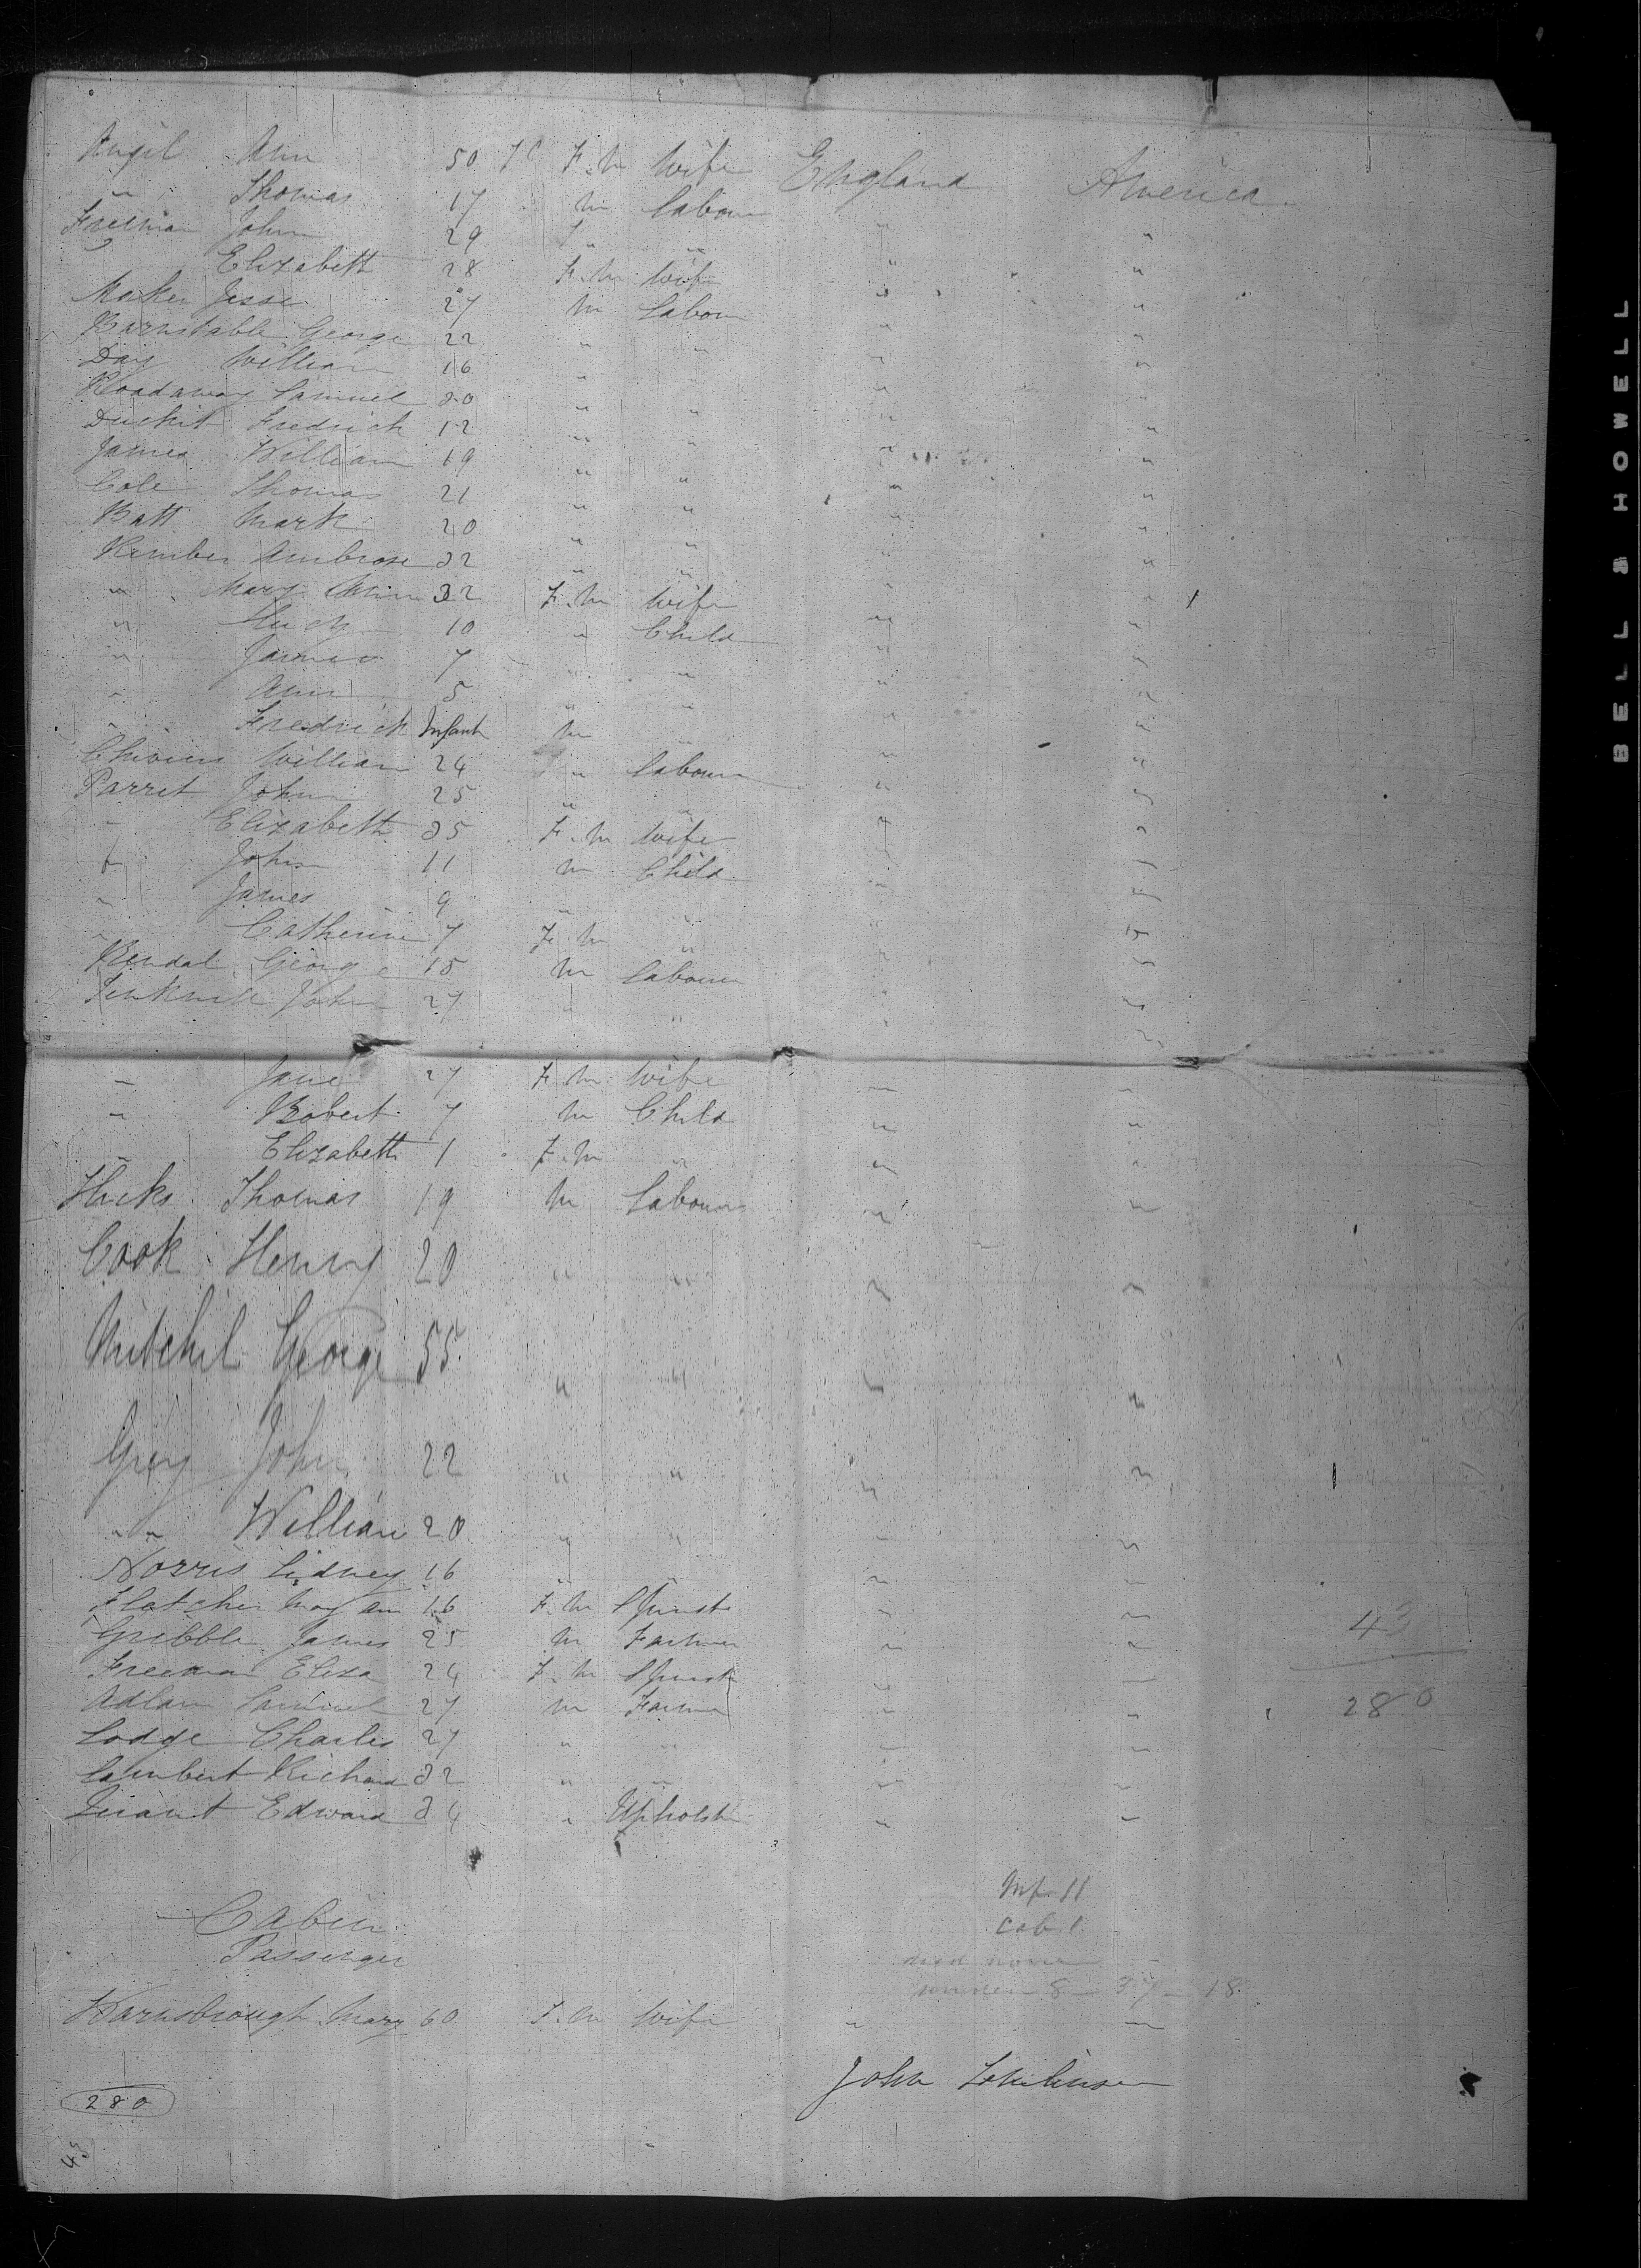 Angel Ann 50 F.M Wife England America
" " Thomas 17 M Labour
Freeman John 29 " " " "
Elizabeth 28 F.M Wife " "
Maker Jesse 27 M Labour " "
Barnstable George 22 " " " "
Day William 16 " " " "
Roadaway Samuel 20 " " " "
Duckit Fredrich 12 " " " "
James William 19 " " " "
Cole Thomas 21 " " " "
Batt Mark 20 " " " "
Kember Ambrose 32 " " " "
" Mary Ann 32 F.M Wife " "
" Lucy 10 " Child " "
" James 7 " " " "
" Ann 5 " " " "
" Fredrich Infant M " " "
Chivers William 24 " Labour " "
Parret John 25 " " " "
" Elizabeth 35 F.M Wife " "
" John 11 M Child " "
" James 9 " " " "
" Catherine 7 F.M " " "
Kendal George 15 M Labour " "
John 27 " " " "
" Jane 27 F.M Wife " "
" Robert 7 M Child " "
" Elizabeth 1 F.M " " "
Hicks Thomas 19 M Labour " "
Cook Henry 20 " " " "
Mitchil George 55 " " " "
Grey John 22 " " " "
" " William 20 " " " "
Norris Sidney 16 " " " "
Flatcher May Ann 16 F.M Spinst " "
Gribble James 25 M Farmer " "
43
Freeman Eliza 24 F.M Spinst " "
Adlam Samuel 27 M Farmer " "
280
Lodge Charles 27 " " " "
Lambert Richard 32 " " " "
Edward 34 " Upholst " "
Mf. 11
Cabin
Cab. 1
Passenger
8 - 37 - 18
Warnsbrough Mary 60 F.M Wife " "
John Tomlinson
280
43
BELL & HOWELL